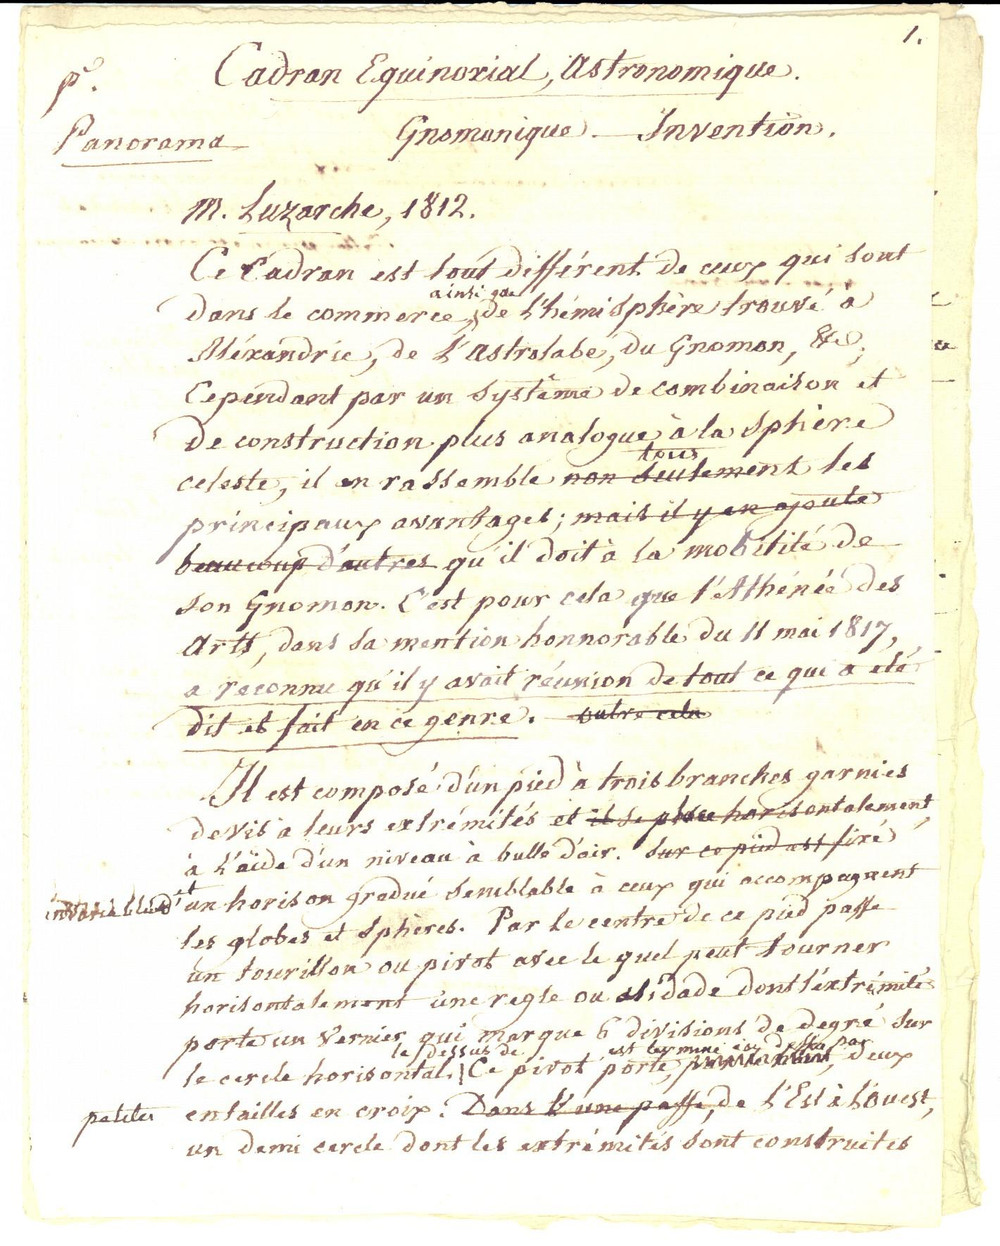 1.
pr.
Cadran Equinoxial, Astronomique.
Panorama
Gnomonique — Invention.
M. Luzarche, 1812.
Ce Cadran est tout différent de ceux qui sont
ainsi que
dans le commerce, de l'hémisphère trouvé à
Aléxandrie, de l'Astrolabe, du Gnomon, &c;
Cependant par un systême de combinaison et
de construction plus analogue à la sphère
tous
celeste, il en rassemble non seulement les
principaux avantages; mais il y en ajoute
beaucoup d'autres qu'il doit à la mobilité de
son Gnomon. C'est pour cela que l'Athénée des
Arts, dans sa mention honnorable du 11 mai 1817,
a reconnu qu'il y avait réunion de tout ce qui a été
dit et fait en ce genre. outre cela
Il est composé d'un pied à trois branches garnies
de vis à leurs extrémités et il se place horisontalement,
à l'aïde d'un niveau à bulle d'air. Sur ce pied est fixé
et
un horison gradué semblable à ceux qui accompagnent
les globes et sphères. Par le centre de ce pied passe
un tourillon ou pivot avec le quel peut tourner
horisontalement une regle ou alidade dont l'extrémité
porte un vernier qui marque 6 divisions de degré sur
le dessus de est terminé en dessus par
le cercle horisontal. Ce pivot porte, deux
petites
entailles en croix: Dans l'une passe, de l'Est à l'Ouest,
un demi cercle dont les extrémités sont construites